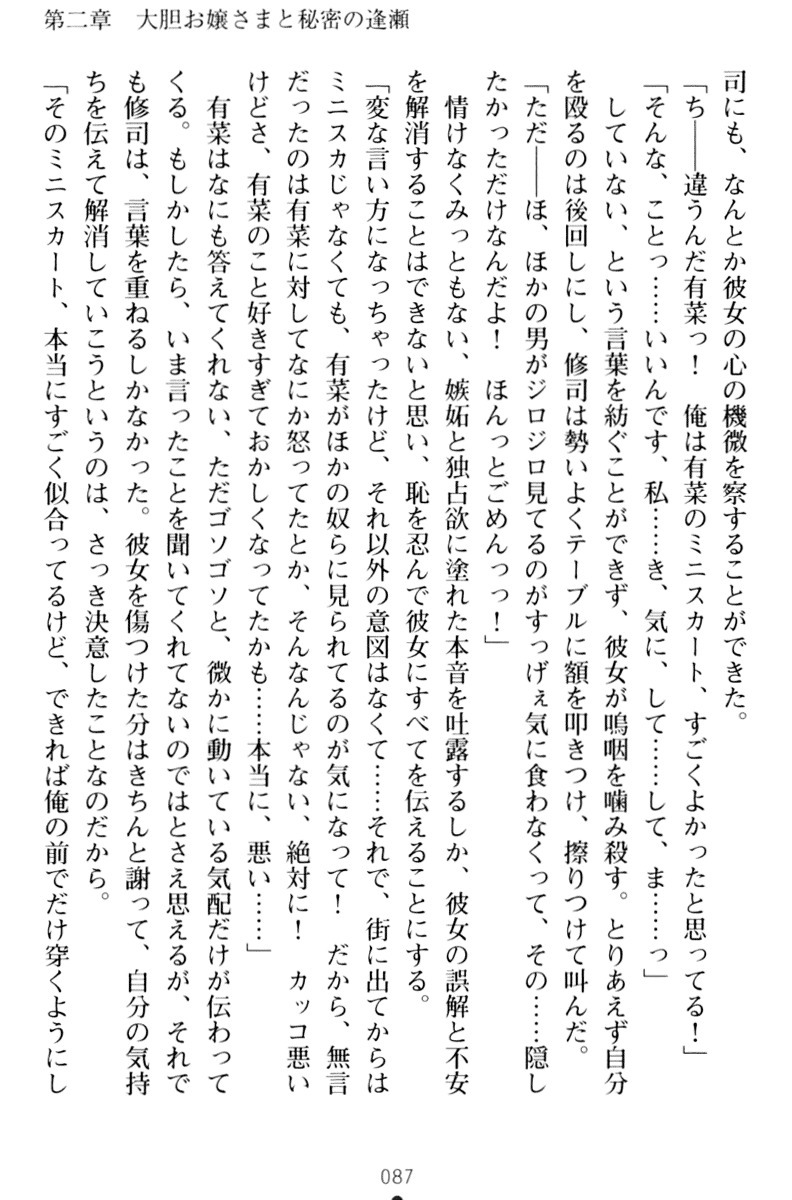 第二章　大胆お嬢さまと秘密の逢瀬
司にも、なんとか彼女の心の機微を察することができた。
「ち――違うんだ有菜っ！　俺は有菜のミニスカート、すごくよかったと思ってる！」
「そんな、ことっ……いいんです、私……き、気に、して……して、ま……っ」
していない、という言葉を紡ぐことができず、彼女が嗚咽を噛み殺す。とりあえず自分
を殴るのは後回しにし、修司は勢いよくテーブルに額を叩きつけ、擦りつけて叫んだ。
「ただ――ほ、ほかの男がジロジロ見てるのがすっげぇ気に食わなくって、その……隠し
たかっただけなんだよ！　ほんっとごめんっっ！」
情けなくみっともない、嫉妬と独占欲に塗れた本音を吐露するしか、彼女の誤解と不安
を解消することはできないと思い、恥を忍んで彼女にすべてを伝えることにする。
「変な言い方になっちゃったけど、それ以外の意図はなくて……それで、街に出てからは
ミニスカじゃなくても、有菜がほかの奴らに見られてるのが気になって！　だから、無言
だったのは有菜に対してなにか怒ってたとか、そんなんじゃない、絶対に！　カッコ悪い
けどさ、有菜のこと好きすぎておかしくなってたかも……本当に、悪い……」
有菜はなにも答えてくれない、ただゴソゴソと、微かに動いている気配だけが伝わって
くる。もしかしたら、いま言ったことを聞いてくれてないのではとさえ思えるが、それで
も修司は、言葉を重ねるしかなかった。彼女を傷つけた分はきちんと謝って、自分の気持
ちを伝えて解消していこうというのは、さっき決意したことなのだから。
「そのミニスカート、本当にすごく似合ってるけど、できれば俺の前でだけ穿くようにし
087